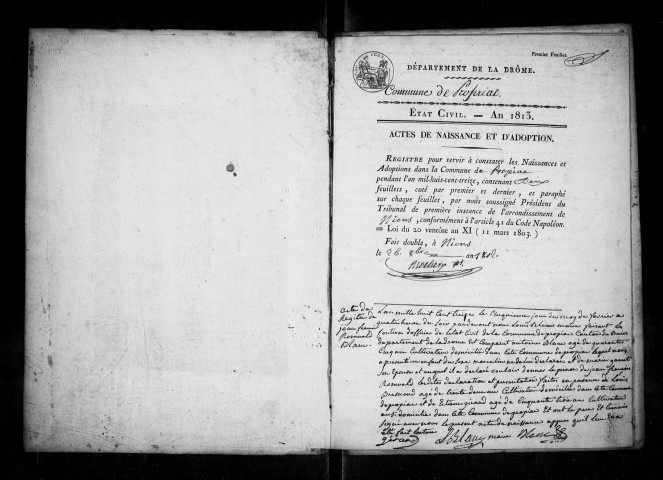 Premier Feuillet.
DÉPARTEMENT DE LA DRÔME.
Commune de Propiac.
ETAT CIVIL. — AN 1813.
ACTES DE NAISSANCE ET D'ADOPTION.
REGISTRE pour servir à constater les Naissances et
Adoptions dans la Commune de Propiac
pendant l'an mil-huit-cent-treize, contenant
feuillets, coté par premier et dernier, et paraphé
sur chaque feuillet, par nous soussigné Président du
Tribunal de première instance de l'arrondissement de
Nions, conformément à l'article 41 du Code Napoléon.
= Loi du 20 ventôse an XI ( 11 mars 1803. )
Fait double, à Nions
le 26 8bre an 1812.
acte de
Naissance de
jean françois
Romuald
Blanc.
L'an mille huit Cent treize le Cinquieme jour du mois de fevrier a
quatre heures du soir pardevant nous Louis Blanc maire faisant les
fonctions d'officier de l'etat Civil de la Commune de propiac Canton du Buis
departement de la drome est Comparu antoine Blanc agé de quarante
Cinq ans Cultivateur domicilié dans Cette Commune de propiac lequel nous
a presenté un enfant du sexe masculin né de lui declarant et de marie
son Epouse et auquel il a declaré vouloir donner le prenom de jean françois
Romuald lesdites declaration et presentation faites en presence de Louis
agé de trente deux ans Cultivateur domicilié dans Cette Commune
de propiac et de Etienne girard agé de Cinquante trois ans Cultivateur
aussi domicilié dans Cette Commune de propiac Et ont le pere Et temoins
signé avec nous le present acte de naissance apres qu'il leur En a
Eté fait lecture
girard L Blanc maire Blanc